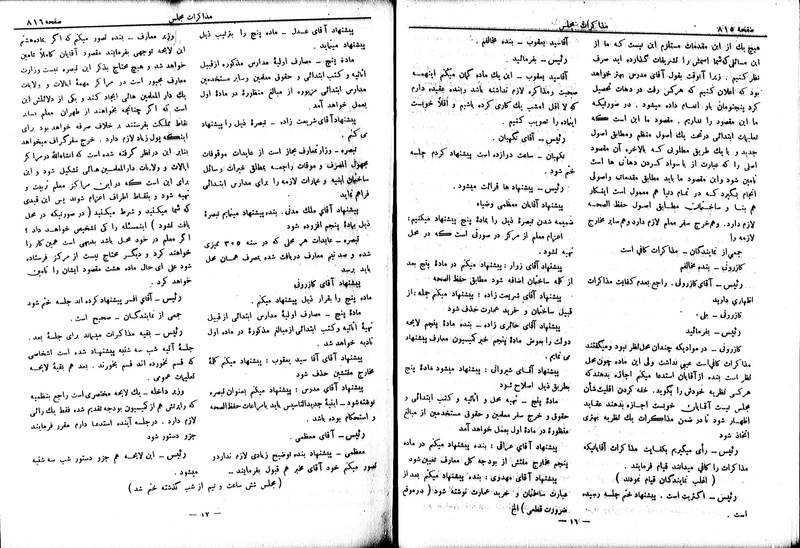 صفحه ۸۱۵
مذاکرات مجلس
هیچ یك از این مقدمات مستلزم این نیست که ما از
نظر کنیم. زیرا آنوقت بقول آقای مدرس بهتر خواهد
بود که اعلان کنیم که هر کس رفت در دهات تحصیل
کرد پنجتومان باو انعام داده میشود. در صورتیکه
ما این مقصود را نداریم. مقصود ما این است که
تعلیمات ابتدائی در تحت یك اصول منظم و مطابق اصول
جدید و با یك طریق مطلوبی که بالاخره آن مقصود
اصلی را که عبارت از با سواد کردن دهاتی ها است
تأمین شود و این مقصود ما باید مطابق مقدمات و اصولی
انجام بگیرد که در تمام دنیا هم معمول است اینکار
هم بنا و ساختمان مطابق اصول حفظ الصحه
لازم دارد. وهم خرج سفر لازم دارد وهم سایر مخارج
لازمه را
جمعی از نمایندگان ـ مذاکرات کافی است
کازرونی ـ بنده مخالفم
رئیس ـ آقای کازرونی. راجع بعدم کفایت مذاکرات
اظهاری دارید
کازرونی ـ بلی.
رئیس ـ بفرمائید
کازرونی ـ در موادیکه چندان محل نظر نبود ومیگفتند
مذاکرات کافی است عیبی نداشت ولی این ماده چون محل
نظر است بنده از آقایان استدعا میکنم اجازه بدهند که
هر کس نظریه خودش را بگوید. خفه کردن اقلیت شأن
مجلس نیست آقایان خوبست اجازه بدهند عقاید
اظهار شود تا در ضمن مذاکرات یك نظریه بهتری
اتخاذ شود
رئیس ـ رأی میگیریم بکفایت مذاکرات آقایانیکه
مذاکرات را کافی میدانند قیام فرمایند.
( اغلب نمایندگان قیام نمودند )
رئیس ـ اکثریت است. پیشنهاد ختم جلسه رسیده
است.
آقا سید یعقوب ـ بنده مخالفم
رئیس ـ بفرمائید.
آقا سید یعقوب ـ این یك ماده گمان میکنم اینهمه
صحبت ومذاکره لازم نداشته باشد و بنده عقیده دارم
که لا اقل امشب یك کاری کرده باشیم و اقلاً خوبست
اینماده را تصویب کنیم.
رئیس ـ آقای نگهبان.
نگهبان ـ ساعت دوازده است پیشنهاد کردم جلسه
ختم شود.
رئیس ـ پیشنهاد ها قرائت میشود.
پیشنهاد آقایان معظمی وضیاء
ضمیمه شدن تبصره ذیل را بمادۀ پنج پیشنهاد میکنیم:
اعزام معلم از مرکز در صورتی است که در محل
تهیه نشود.
پیشنهاد آقای زوار: پیشنهاد میکنم در مادۀ پنج بعد
از کله ساختمان اضافه شود مطابق حفظ الصحه
پیشنهاد آقای شریعت زاده: پیشنهاد میکنم جمله: از
قبیل ساختمان و خرید عمارت حذف شود
پیشنهاد آقای حائری زاده: بنده مادۀ پنجم لایحه
دولت را بعوض مادۀ پنجم خبر کمیسیون معارف پیشنهاد
می نمایم.
پیشنهاد آقای شیروانی: پیشنهاد میشود مادۀ پنج
بطریق ذیل اصلاح شود
مادۀ پنج ـ تهیه محل و اثاثیه و کتب ابتدائی و
حقوق و خرج سفر معلمین و حقوق مستخدمین از مبالغ
منظوره در مادۀ اول بعمل خواهد آمد
پیشنهاد آقای عراقی: بنده پیشنهاد میکنم در ماده
پنجم مخارج مفتش از بودجه کل معارف تعیین شود
پیشنهاد آقای مهدوی: بنده پیشنهاد میکنم بعد از
عبارت ساختمان و خرید عمارت نوشته شود ( در موقع
ضرورت قطعی ) الخ
ـ ۱٦ ـ
مذاکرات مجلس
صفحه ۸۱٦
پیشنهاد آقای عدل ـ مادۀ پنج را بترتیب ذیل
پیشنهاد مینماید.
مادۀ پنج ـ مصارف اولیۀ مدارس مذکوره از قبیل
اثاثیه و کتب ابتدائی و حقوق معلمین وسایر مستخدمین
مدارس ابتدائی مزبوره از مبالغ منظورۀ در مادۀ اول
بعمل خواهد آمد.
پیشنهاد آقای شریعت زاده ـ تبصره ذیل را پیشنهاد
می کنم.
تبصره ـ وزارت معارف مجاز است از عایدات موقوفات
مجهول المصرف و موقوفات راجعه بمطلق خیرات وسائل
ساختمان ابنیه و عمارات لازمه را برای مدارس ابتدائی
فراهم نماید
پیشنهاد آقای ملك مدنی. بنده پیشنهاد مینمایم تبصرۀ
ذیل بمادۀ پنجم افزوده شود
تبصره ـ عایدات هر محلی که در سنه ۳۰۵ ممیزی
شده و صد نیم معارف دریافت شده بمصرف همان محل
باید برسد
پیشنهاد آقای کازرونی
مادۀ پنج را بقرار ذیل پیشنهاد میکنم.
مادۀ پنج ـ مصارف اولیۀ مدارس ابتدائی از قبیل
تهیۀ اثاثیه و کتب ابتدائی از مبالغ مذکورۀ در ماده اول
تادیه خواهد شد.
پیشنهاد آقای آقا سید یعقوب: پیشنهاد میکنم کلمۀ
مخارج مفتشین حذف شود
پیشنهاد آقای مدرس: پیشنهاد میکنم بعنوان تبصره
نوشته شود ـ ابنیۀ جدید التاسیس باید با مراعات حفظ الصحه
و استحکام بوده باشد.
رئیس ـ آقای معظمی.
معظمی ـ بنده پیشنهاد توضیح زیادی لازم ندارد و
تصور میکنم خود آقای مخبر هم قبول بفرمایند ـ
وزیر معارف ـ بنده تصور میکنم که اگر بماده هشتم
این لایحه توجهی بفرمایند مقصود آقایان کاملاً تأمین
خواهد شد و هیچ محتاج بذکر این تبصره نیست وزارت
معارف مجبور است در مراکز مهمۀ ایالات و ولایات
یك دار المعلمین هائی ایجاد کند و یکی از دلائلش این
است که اگر چنانچه بخواهند از طهران معلم بسایر
نقاط مملکت بفرستند بر خلاف صرفه خواهد بود برای
اینکه پول زیاد لازم دارد. خرج سفر گزاف میخواهد
بنابر این در نظر گرفته شده است که انشاءاله در مراکز
ایالات و ولایات دار المعلمین هائی تشکیل شود و این
برای این است که در این مراکز معلم تربیت و
تهیه شود و بنقاط اطراف اعزام شوند پس این قیدی
که شما میکنید و شرط میکنید ( در صورتیکه در محل
یافت نشود ) اینمسئله را کی تشخیص خواهد داد؟
اگر معلم در خود محل باشد بدیهی است همین کار را
خواهند کرد و دیگر محتاج نیست از مرکز فرستاده
شود علی ای حال ماده هشت مقصود ایشان را تأمین
خواهد کرد.
رئیس ـ آقای افسر پیشنهاد کرده اند جلسه ختم شود
جمعی از نمایندگان ـ صحیح است.
رئیس ـ بقیه مذاکرات میماند برای جلسۀ بعد.
جلسۀ آتیه شب سه شنبه پیشنهاد شده است اشخاصی
که قسم نخورده اند قسم بخورند. بعد هم بقیۀ لایحه
تعلیمات عمومی.
وزیر داخله ـ یك لایحه مختصری است راجع بنظمیه
که راپرتش هم از کمیسیون بودجه تقدیم شده فقط یك رائی
لازم دارد. در جلسه آینده استدعا دارم مقرر فرمایند
جزو دستور شود
رئیس ـ این لایحه هم جزو دستور شب سه شنبه
میشود.
( مجلس شش ساعت و نیم از شب گذشته ختم شد )
ـ ۱۷ ـ